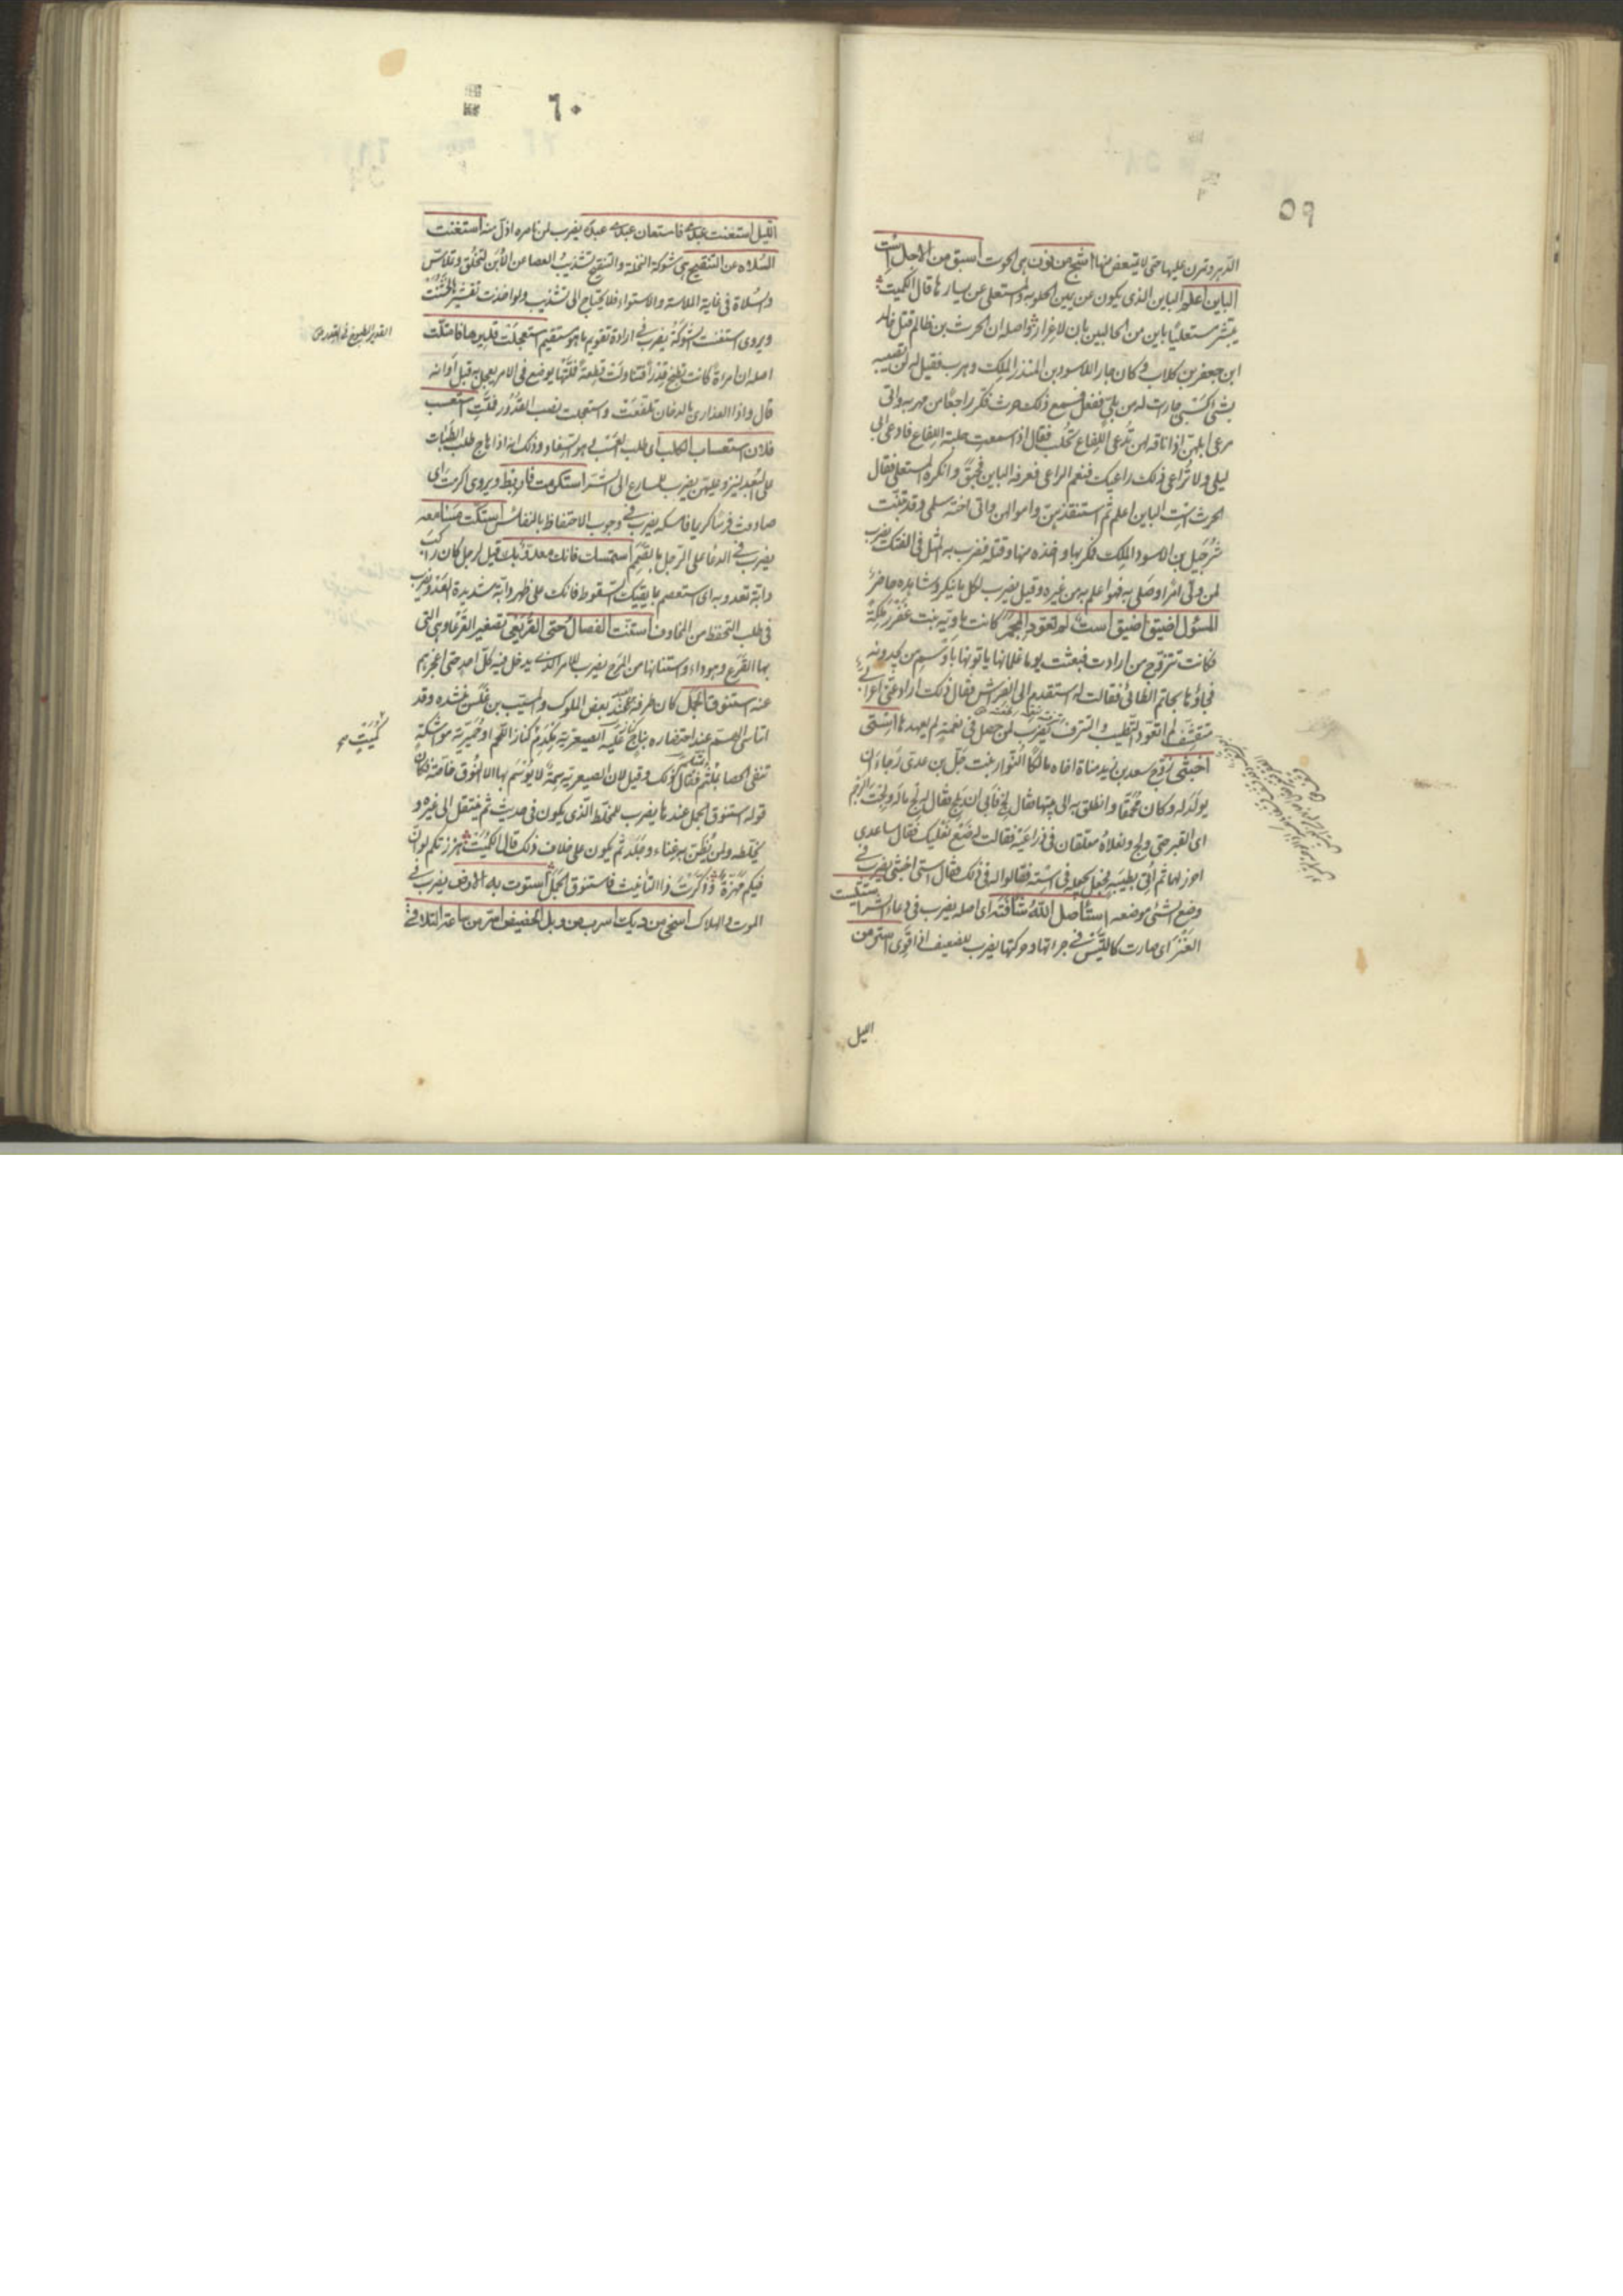 ٥٩
الدبر وتمرن عليها حتى لا يتبعض منها اسبح من نون هي الحوت اسبق من الاجل است
الباين اعلم الباين الذي يكون عن يمين الحلوبه والمستعلى عن يسارها قال الكميت
يبشر مستعليا باين من الحالبين بان لا غرارا واصله ان الحرث بن ظالم قتل خالد
ابن جعفر بن كلاب وكان جار الاسود بن المنذر الملك وهرب فقيل له لن تصيبه
بشئ كسبي جارات له من بلي ففعل فسمع ذلك حرث فكر راجعا من مهربه واتى
مرعى ابلهن اذا ناقة لهن تدعى اللفاع تحلب فقال اذا سمعت حلبة اللفاع فادعى ابا
ليلى ولا تراعى ذلك راعيك فنعم الراعي فعرفه الباين فحبق وانكره المستعلى فقال
الحرث است الباين اعلم ثم استنقذهن واموالهن واتى اخته سلمى وقد تبنت
شرحبيل بن الاسود الملك فمكر بها واخذه منها وقتله فضرب به المثل في الفتك يضرب
لمن ولي امرا وصلى به فهو اعلم به من غيره وقيل يضرب لكل ما ينكر وشاهده حاضر
المسؤل اضيق است لم تعود المجمر كانت ماوية بنت عفزر ملكة
فكانت تتزوج من ارادت فبعثت يوما غلمانها ياتونها باوسم من يجدونه
فجاؤها بحاتم الطائي فقالت له استقدم الى الفراش فقال ذلك اراد عنى اعرابي
متقشف لم اتعود الطيب والترف يضرب لمن حصل في نعمة لم يعهدها استى
اخبثى زوج سعد بن زيد مناة اخاه مالكا النوار بنت جل بن عدى رجاء ان
يولد له وكان محمقا وانطلق به الى بيتها فقال لج فابى ان يلج فقال لج مال ولجت الرجم
اى القبر حتى ولج ونعلاه معلقتان في ذراعيه فقالت له ضع نعليك فقال ساعدى
احرز لهما ثم اتى بطيب فجعل يجعله في استه فقالوا له في ذلك فقال استى اخبثى يضرب في
وضع الشئ موضعه استاصل الله شافته اى اصله يضرب في دعاء الشر استتيست
العنز اى صارت كالتيس في جراتها وحركتها يضرب للضعيف اذا قوى استر من
الليل
٦٠
الليل استعنت عبدى فاستعان عبدى عبده يضرب لمن ناصره اذل منه استغنت
السلاءة عن التنقيح هى شوكة النخلة والتنقيح تشذيب العصا عن الابن
والسلاة في غاية الملاسة والاستواء فلا يحتاج الى تشذيب ولو اخذت تقشرها لخشنت
ويروى استغنت الشوكة يضرب في ارادة تقويم ما هو مستقيم استعجلت قديرها فامتلت
اصله ان امراة كانت تطبخ قدرا فتناولت قطعة فملتها يوضع في الامر يعجل به قبل اوانه
قال واذا العذارى بالدخان تلفعت واستعجلت نصب القدور فملت استعسب
فلان استعساب الكلب اى طلب العسب وهو السفاد وذلك انه اذا هاج طلب الكلبات
على البعد لينزو عليهن يضرب للمسارع الى الشر استكرمت فاربط ويروى اكرمت اى
صادفت فرسا كريما فامسكه يضرب في وجوب الاحتفاظ بالنفائس استكت مسامعه
يضرب في الدعاء على الرجل بالصمم استمسك فانك معدو بك قيل لرجل كان راكب
دابة تعدو به اى استعصم بما يقيك السقوط فانك على ظهر دابة شديدة العدو يضرب
في طلب التحفظ من المخاوف استنت الفصال حتى القريعى تصغير القرعاء وهي التى
بها القرع وهو داء واستنانها من المرح يضرب للامر الذى يدخل فيه كل احد حتى اعجزهم
عنه استنوق الجمل كان طرفة عند بعض الملوك والمسيب بن علس ينشده وقد
اتناسى الهم عند احتضاره بناج عليه الصيعرية مكدم كناز اللحم او حميرية مواشكة
تنفى الحصا بملثم فقال ذلك وقيل لان الصيعرية سمة لا يوسم بها الا النوق خاصة فكان
قوله استنوق الجمل عندها يضرب للمخلط الذى يكون في حديث ثم ينتقل الى غيره و
يخلطه ولمن يظن به غناء وجلد ثم يكون على خلاف ذلك قال الكميت هززتكم لو ان
فيكم مهزة وذكرت ذا التانيث فاستنوق الجمل استوت به الارض يضرب في
الموت والهلاك اسخى من ديك اسرب من وبل الحضيض اسر من ساعة التلاقى
القدير المطبوخ في القدور ص
كميت صح